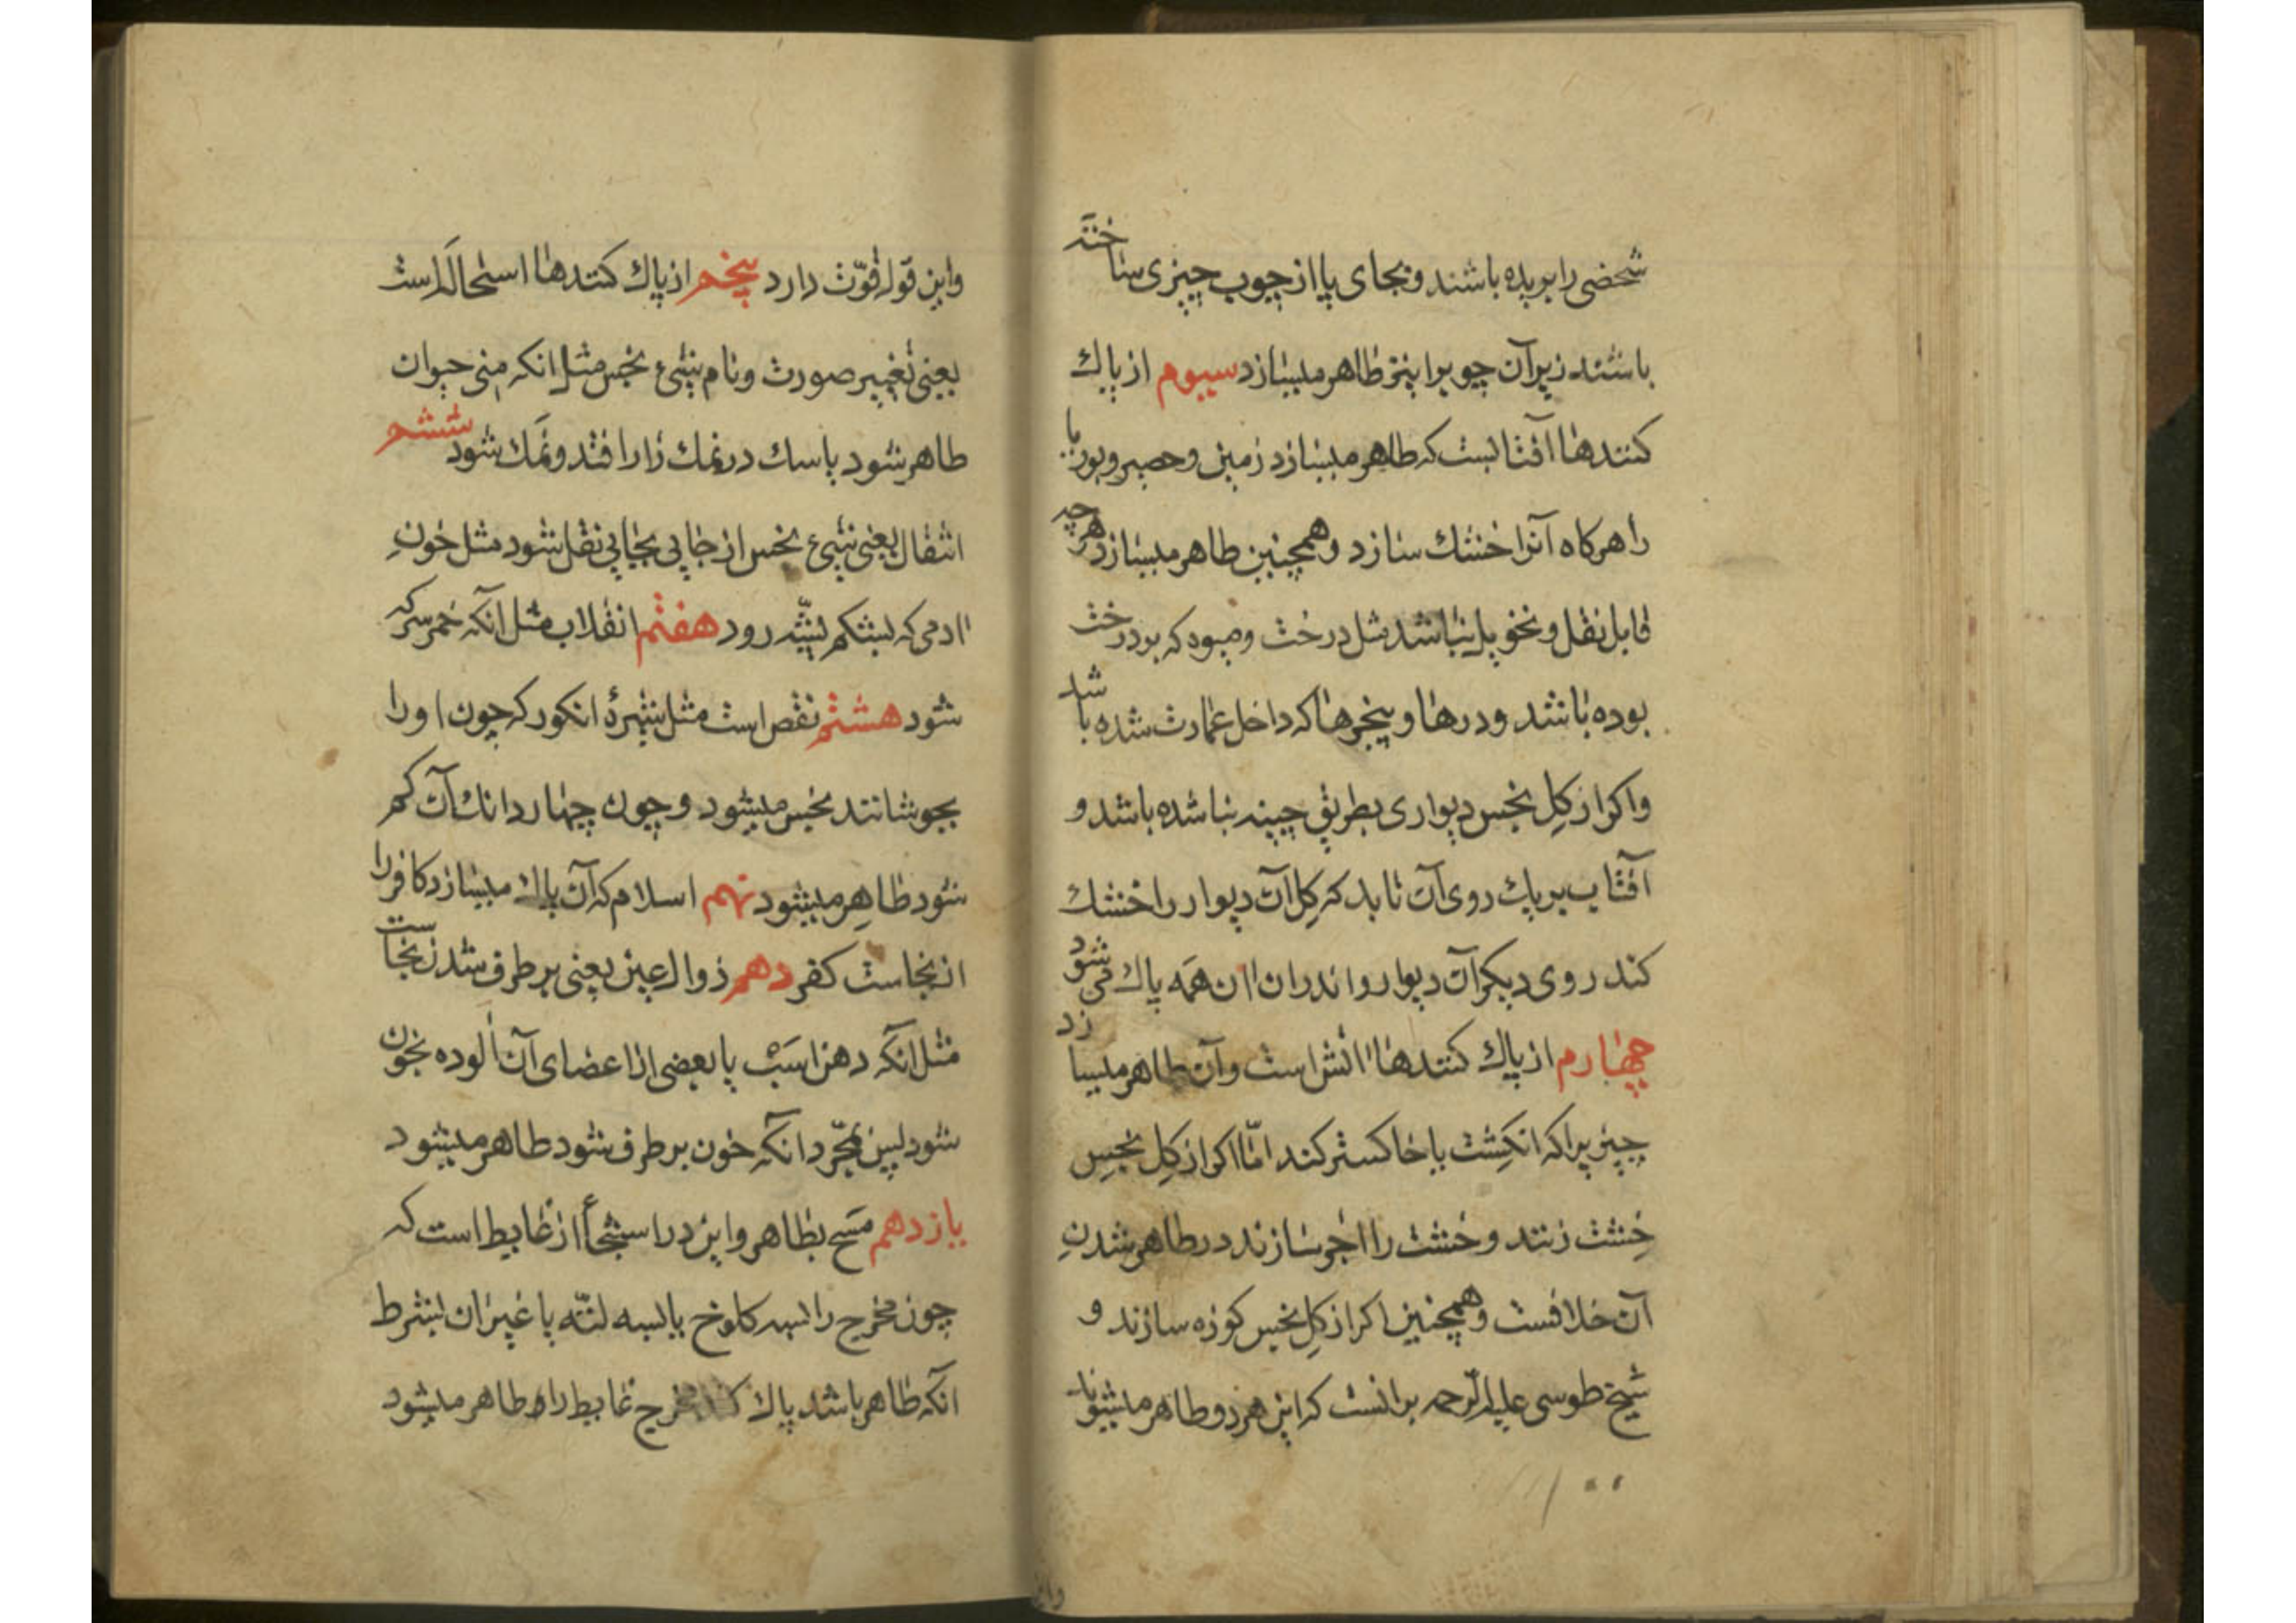 شخصی را بریده باشند و بجای پا از چوب چیزی ساخته
باشند زیر آن چوب را نیز طاهر میسازد سیوم از پاك
کنندها آفتابست که طاهر میسازد زمین و حصیر و بوریا
را هرکاه آنرا خشك سازد و همچنین طاهر میسازد هرچه
قابل نقل و تحویل نباشد مثل درخت و میوه که بر درخت
بوده باشد و درها و پنجرها که داخل عمارت شده باشد
و اکر از کِل نجس دیواری بطریق چینه بنا شده باشد و
آفتاب بر یك روی آن تابد که کِل آن دیوار را خشك
کند روی دیکر آن دیوار و اندران ان همه پاك می شود
چهارم از پاك کنندها اتش است و آن طاهر میسازد
چیزیرا که انکِشت یا خاکستر کند امّا اکر از کِل نجسِ
خِشت زنند و خشت را اجر سازند در طاهر شدنِ
آن خلافست و همچنین اکر از کِل نجس کوزه سازند و
شیخ طوسی علیه الرّحمه برانست که این هر دو طاهر میشوند
و این قول قوّت دارد پنجم از پاك کنندها استحالَه است
یعنی تغییر صورت و نام شیء نجس مثل انکه منی حیوان
طاهر شود یا سك در نمك زار افتد و نمَك شود ششم
انتقال یعنی شیء نجس از جایی بجایی نقل شود مثل خونِ
ادمی که بشکم پشّه رود هفتم انقلاب مثل آنکه خمر سرکه
شود هشتم نقص است مثل شیرهٔ انکور که چون او را
بجوشانند نجس میشود و چون چهار دانك آن کم
شود طاهِر میشود نهم اسلام که آن پاك میسازد کافر را
از نجاست کفر دهم زوال عین یعنی بر طرف شدن نجاست
مثل انکه دهن اسَب یا بعضی از اعضای آن الوده بخون
شود پس بمجّرد آنکه خون بر طرف شود طاهر میشود
یازدهم مَسح بطاهر و این در استنجأ از غایط است که
چون مخرج را بسه کلوخ یا بسه لتّه یا غیر ان بشرط
انکه طاهر باشد پاك کند مخرج غایط را طاهر میشود